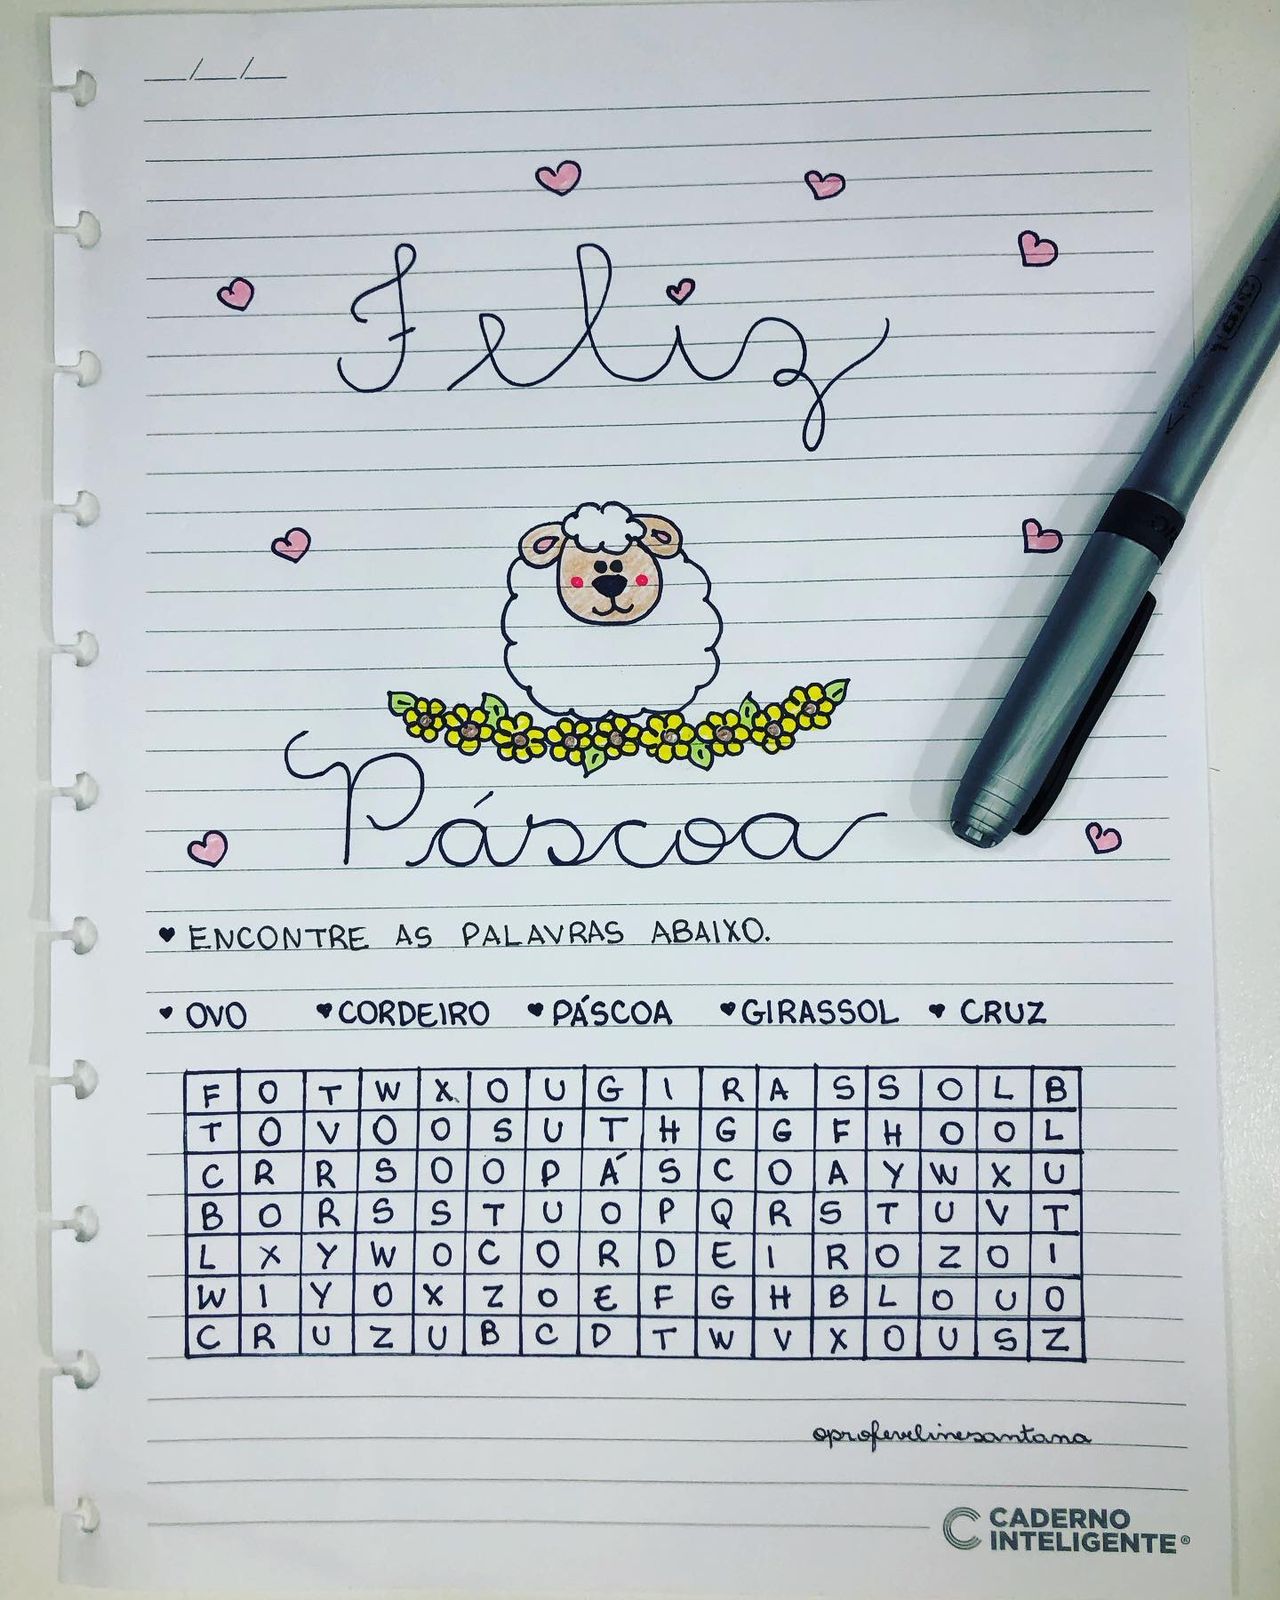 __/__/__
Feliz
Páscoa
♥ ENCONTRE AS PALAVRAS ABAIXO.
♥ OVO ♥ CORDEIRO ♥ PÁSCOA ♥ GIRASSOL ♥ CRUZ
F O T W X O U G I R A S S O L B
T O V O O S U T H G G F H O O L
C R R S O O P Á S C O A Y W X U
B O R S S T U O P Q R S T U V T
L X Y W O C O R D E I R O Z O I
W I Y O X Z O E F G H B L O U O
C R U Z U B C D T W V X O U S Z
@profevelinesantana
CADERNO
INTELIGENTE®